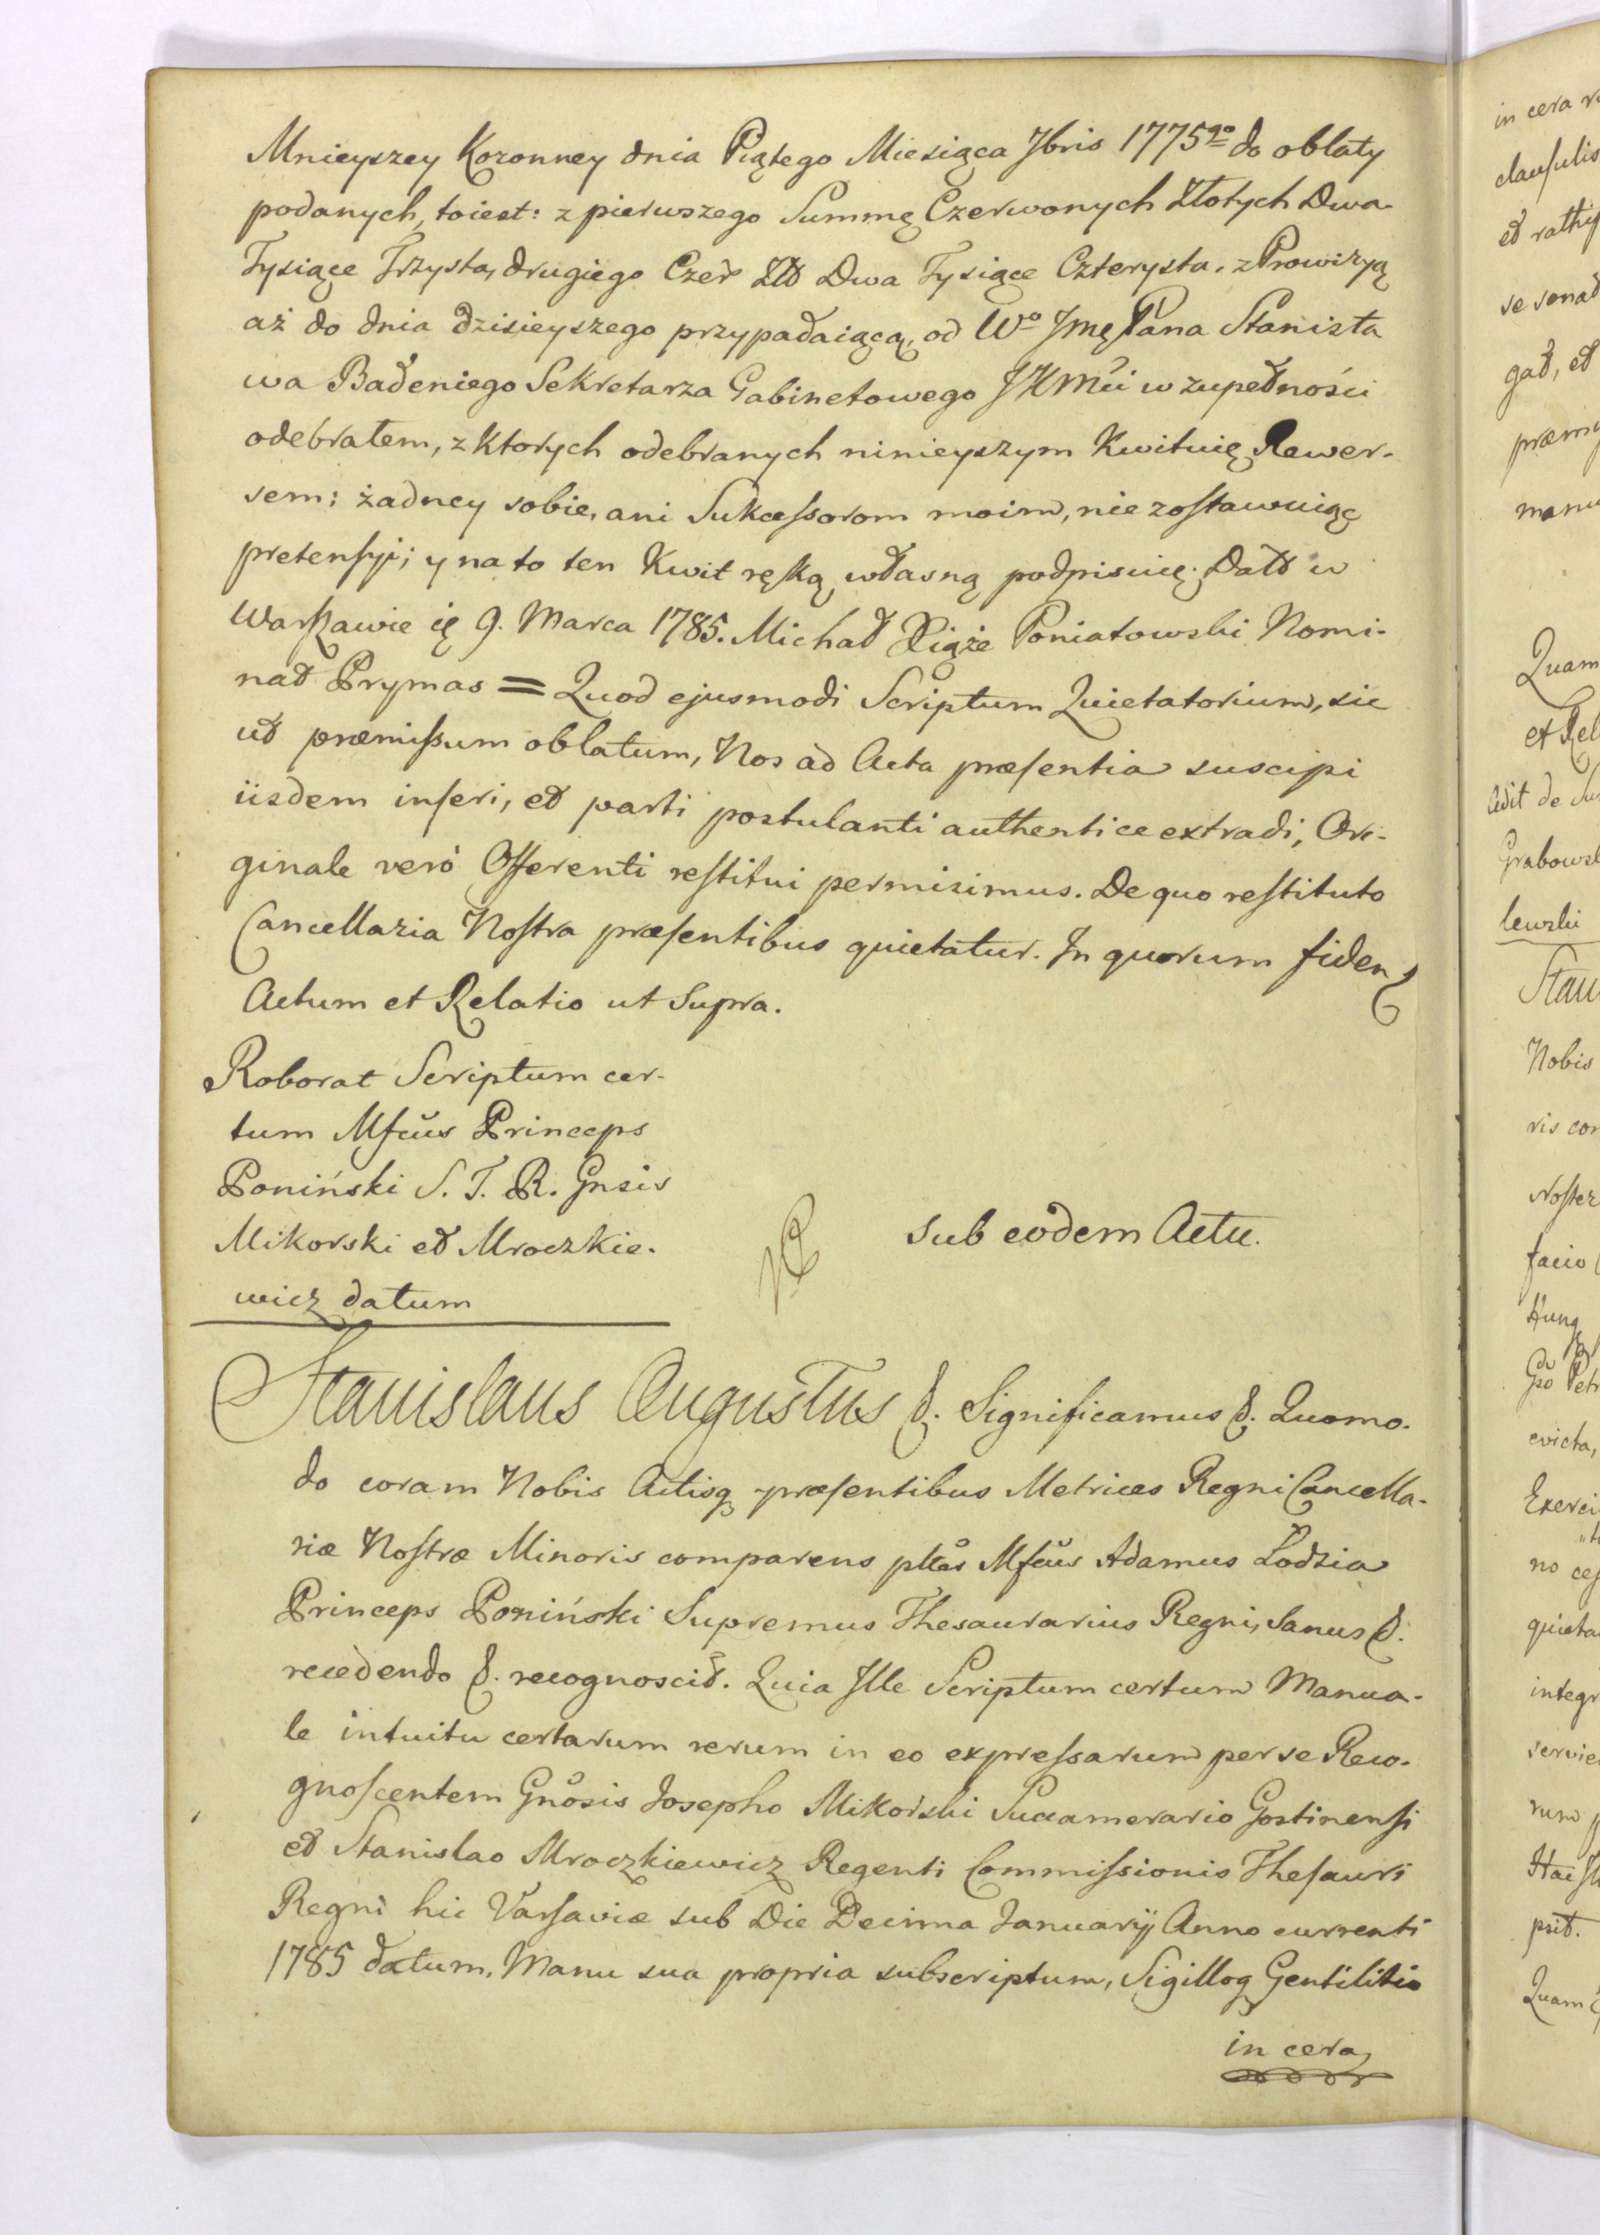 Mnieyszey Koronney dnia Piątego Miesiąca Jbris 1775go do oblaty
podanych, toiest: z pierwszego Summę Czerwonych Złotych Dwa
Tysiące Trzysta, drugiego Czer Złt Dwa Tysiące Czterysta, z Prowizyą
aż do dnia dzisieyszego przypadaiącą, od Wo Jmę Pana Stanisła
wa Badeniego Sekretarza Gabinetowego JKMci w zupełności
odebrałem, z ktorych odebranych ninieyszym Kwituię Rewer-
sem; żadney sobie, ani Sukcessorom moim, nie zostawuiąc
pretensyi; y na to ten Kwit ręką własną podpisuię. Datt w
Warszawie ię 9. Marca 1785. Michał Xiąże Poniatowski Nomi-
nat Prymas = Quod ejusmodi Scriptum Quietatorium, sic
ut præmissum oblatum, Nos ad Acta præsentia suscipi
iisdem inseri, et parti postulanti authentice extradi, Ori-
ginale verò Offerenti restitui permisimus. De quo restituto
Cancellaria Nostra præsentibus quietatur. In quorum fidem
Actum et Relatio ut Supra.
Roborat Scriptum cer-
tum Mfcus Princeps
Poniński S. T. R. Gnsis
Mikorski et Mroczkie-
wicz datum
Sub eodem Actu.
Stanislaus Augustus &. Significamus &. Quomo-
do coram Nobis Actisq præsentibus Metrices Regni Cancella-
riæ Nostræ Minoris comparens pltus Mfcus Adamus Łodzia
Princeps Poniński Supremus Thesaurarius Regni, Sanus &.
recedendo &. recognoscit. Quia Ille Scriptum certum Manua-
le intuitu certarum rerum in eo expressarum per se Reco-
gnoscentem Gnosis Josepho Mikorski Succamerario Gostinensi
et Stanislao Mroczkiewicz Regenti Commissionis Thesauri
Regni hic Varsaviæ sub Die Decima Januarij Anno currenti
1785 datum, Manu sua propria subscriptum, Sigilloq Gentilitio
in cera
in cera
clausulis
et
gat, et
manu
Quam
et Rel
Adit de
Grabows
lewski
Stan
Nobis
ris con
Noster
facio
evicta,
Exerci
no
quieta
integr
servie
Quam